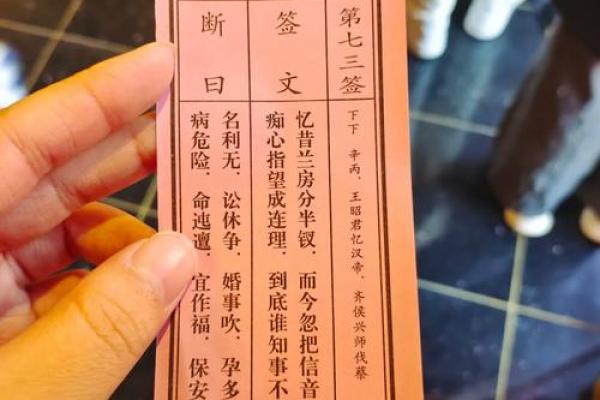 第七三签
下下 辛丙．王昭君忆汉帝．齐侯兴师伐蔡
签文
忆昔兰房分半钗．而今忽把信音
痴心指望成连理．到底谁知事不
断曰
名利无．讼休争．婚事吹．孕多
病危险．命迍邅．宜作福．保安